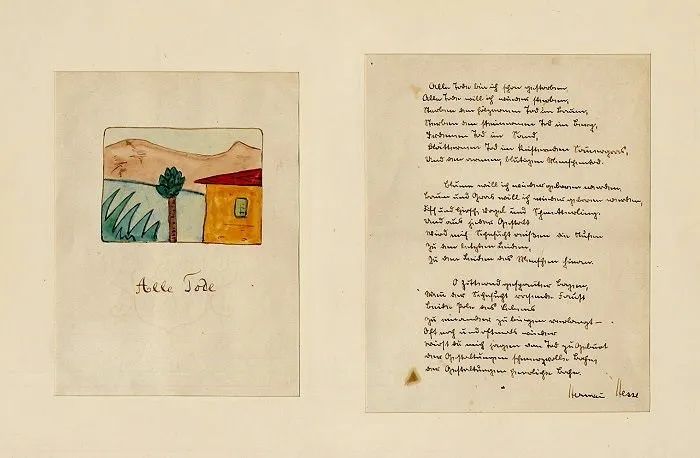 Alle Tode
Alle Tode bin ich schon gestorben,
Alle Tode will ich wieder sterben,
Sterben den hölzernen Tod im Baum,
Sterben den steinernen Tod im Berg,
Irdenen Tod im Sand,
Blätternen Tod im knisternden Sommergras,
Und den armen, blutigen Menschentod.
Blume will ich wieder geboren werden,
Baum und Gras will ich wieder geboren werden,
Fisch und Hirsch, Vogel und Schmetterling.
Und aus jeder Gestalt
Wird mich Sehnsucht reißen die Stufen
Zu den letzten Leiden,
Zu den Leiden des Menschen hinan.
O zitternd gespannter Bogen,
Wenn der Sehnsucht rasende Faust
Beide Pole des Lebens
Zu einander zu biegen verlangt –
Oft noch und oftmals wieder
Wirst du mich jagen von Tod zu Geburt
Der Gestaltungen schmerzvolle Bahn,
Der Gestaltungen herrliche Bahn.
Hermann Hesse